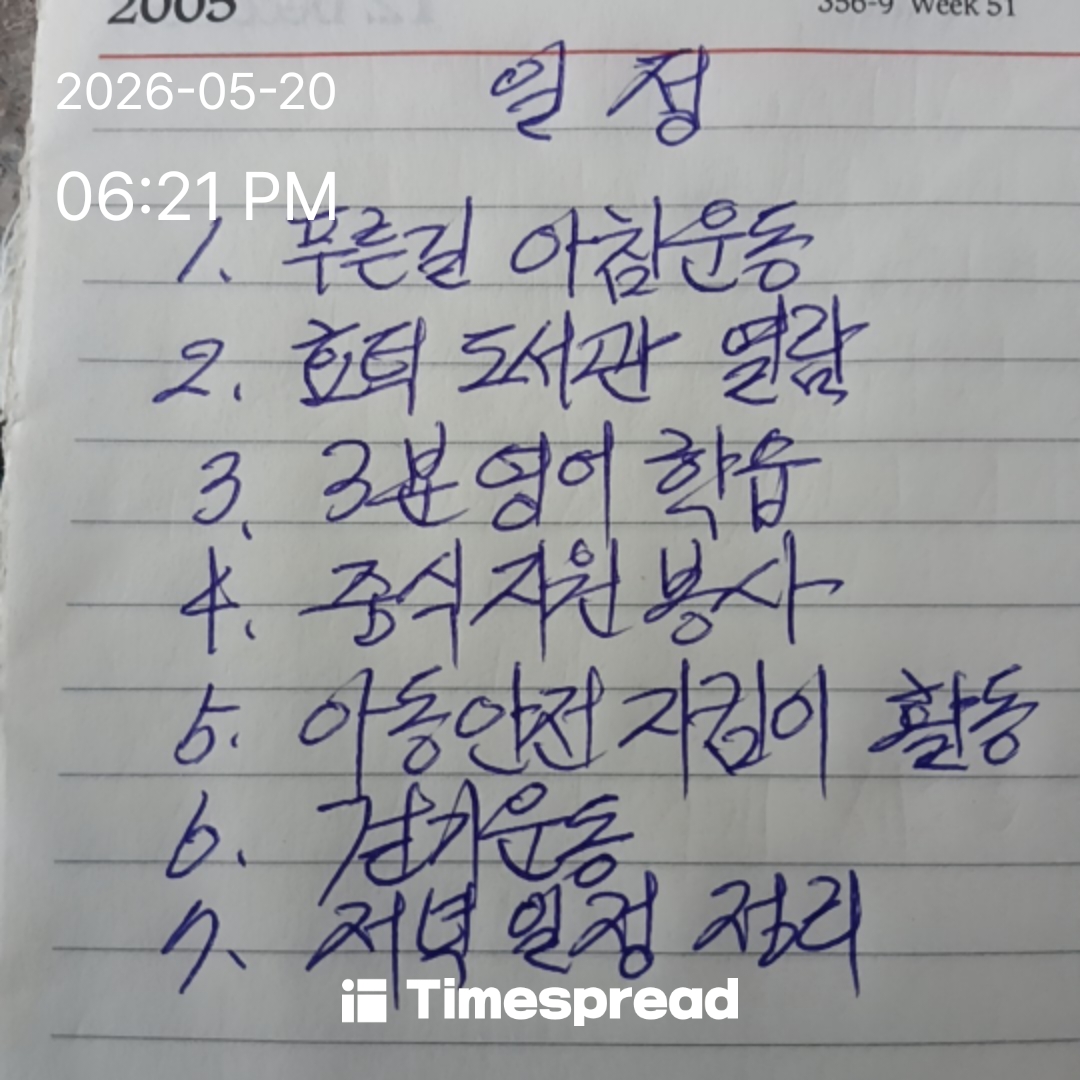 2005
356-9 Week 51
2026-05-20
일 정
06:21 PM
1. 푸른길 아침운동
2. 효덕 도서관 열람
3. 3분 영어 학습
4. 중식 자원 봉사
5. 아동안전 지킴이 활동
6. 걷기운동
7. 저녁 일정 정리
Timespread